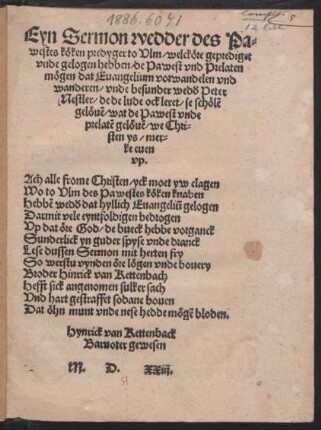 1886.6041
Eyn Sermon wedder des Pa-
westes köken predyger to Vlm/ welcköre geprediget
vnde gelogen hebben/ de Pawest vnd Prelaten
mögen dat Euangelium vorwandelen vnd
wanderen/ vnde besunder wedd̄ Peter
Nestler/ de de lude ock leret/ se schölē
gelöuē/ wat de Pawest vnde
prelatē gelöuē/ we Chri-
sten ys/ mer-
ke euen
vp.
Ach alle frome Christen/ yck moet yw clagen
Wo to Vlm des Pawestes köken knaben
Hebbē wedd̄ dat hyllich Euangeliū gelogen
Darmit vele eyntfoldigen bedrogen
Vp dat öre God/ de bueck hebbe vorganck
Sunderlick yn guder spyse vnde dranck
Lese dussen Sermon mit herten fry
So werstu vynden öre lögen vnde bouery
Broder Hinrick van Kettenbach
Hefft sick angenomen sulker sach
Vnd hart gestraffet sodane bouen
Dat öhn munt vnde nese hedde mögē bloden.
Hynrick van Kettenback
Baruoter gewesen
M. D. XXiij.